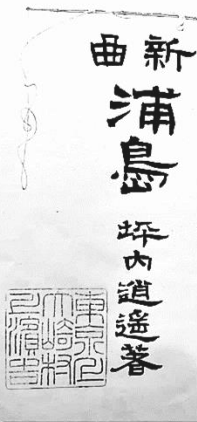 新曲
浦島
坪内逍遙著